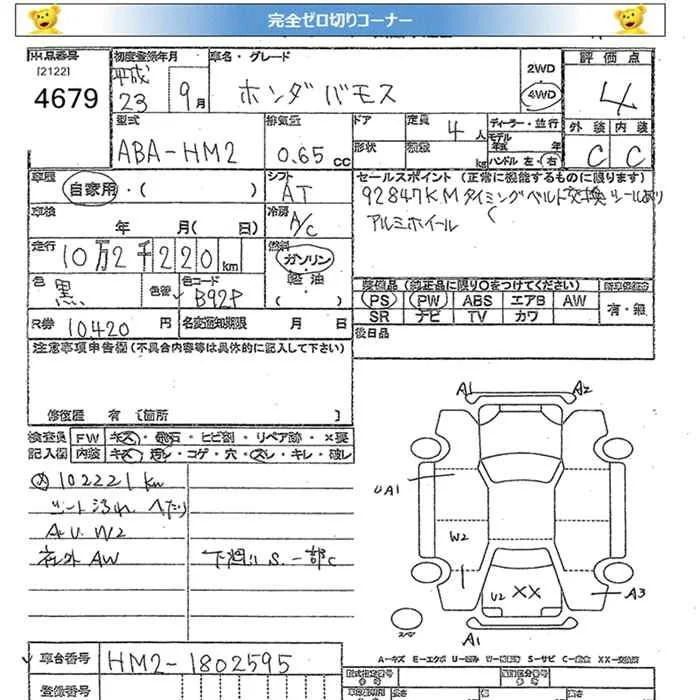 完全ゼロ切りコーナー
出品番号 初度登録年月 車名・グレード 評価点
[2122] 平成 2WD
4679 23 9月 ホンダバモス 4WD 4
型式 排気量 ドア 定員 4人 ディーラー・並行 外装 内装
モデル年式 年
ABA-HM2 0.65 cc 形状 kg ハンドル 左・右 C C
車歴 自家用・( ) シフト AT セールスポイント(正常に機能するものに限ります)
92847KMタイミングベルト交換シールあり
車検 年 月( 日) 冷房 A/C アルミホイール
走行 10万2千220km 燃料 ガソリン・軽油( )
色 黒 色替 色コード B92P 装備品(純正品に限り○をつけてください)
PS PW ABS エアB AW 有・無
SR ナビ TV カワ
R券 10,420円 名変通知期限 月 日 後日品
注意事項申告欄(不具合内容等は具体的に記入して下さい)
修復歴 有 [箇所 ]
検査員 FW キズ・飛石・ヒビ割・リペア跡・×要
記入欄 内装 キズ・汚レ・コゲ・穴・スレ・キレ・破レ
102221km
シート汚れ へたり
A.U.W2
社外AW 下廻りS.一部C
A1 A2
UA1
W2
U2 XX A3
A1
スペア
A-キズ E-エクボ U-凹み S-サビ XX-交換済
車台番号 HM2-1802595
登録番号 型式指定番号 類別区分番号
長さ 幅 高さ